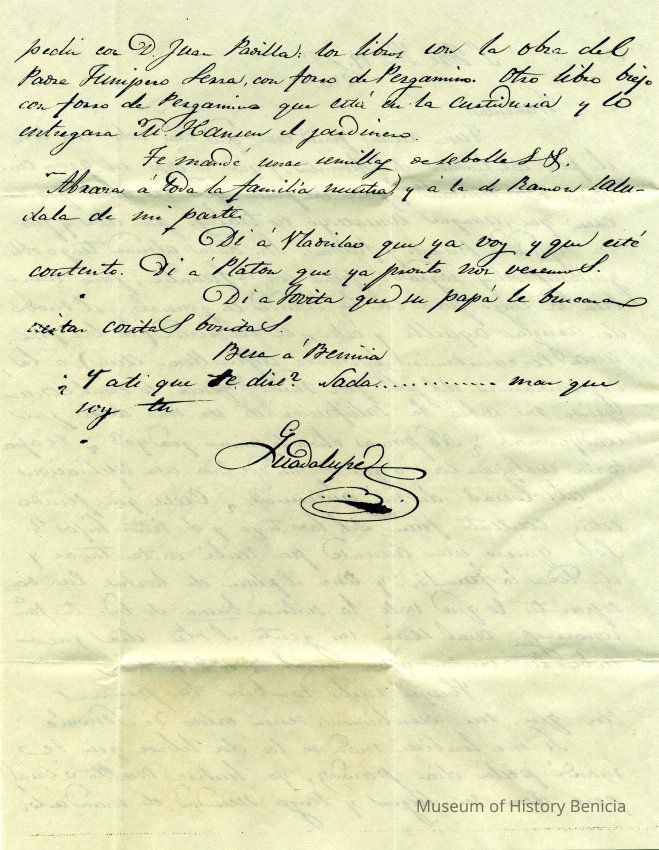 pedir con D. Juan Padilla: los libros con la obra del
Padre Junipero Serra, con forro de Pergamino. Otro libro biejo
con forro de Pergamino que está en la and y lo
entregara Mr. Hansen el jardinero.
Te mandé unas semillas de sebolla S S.
Abraza á toda la familia nuestra y á la de Ramon salu-
dala de mi parte.
Di á Uladislao que ya voy y que esté
contento. Di á Platon que ya pronto nos veremos.
Di a Jovita que su papá le buscara
cositas bonitas.
Besa á Benicia
¿ Y a ti que te diré? Nada............ mas que
soy tu
Guadalupe
Museum of History Benicia